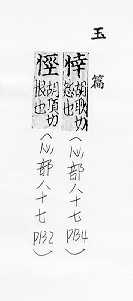 玉篇
悻 胡耿切
怒也
(心部八十七 PB4)
胡頂切
恨也
(心部八十七 PB2)